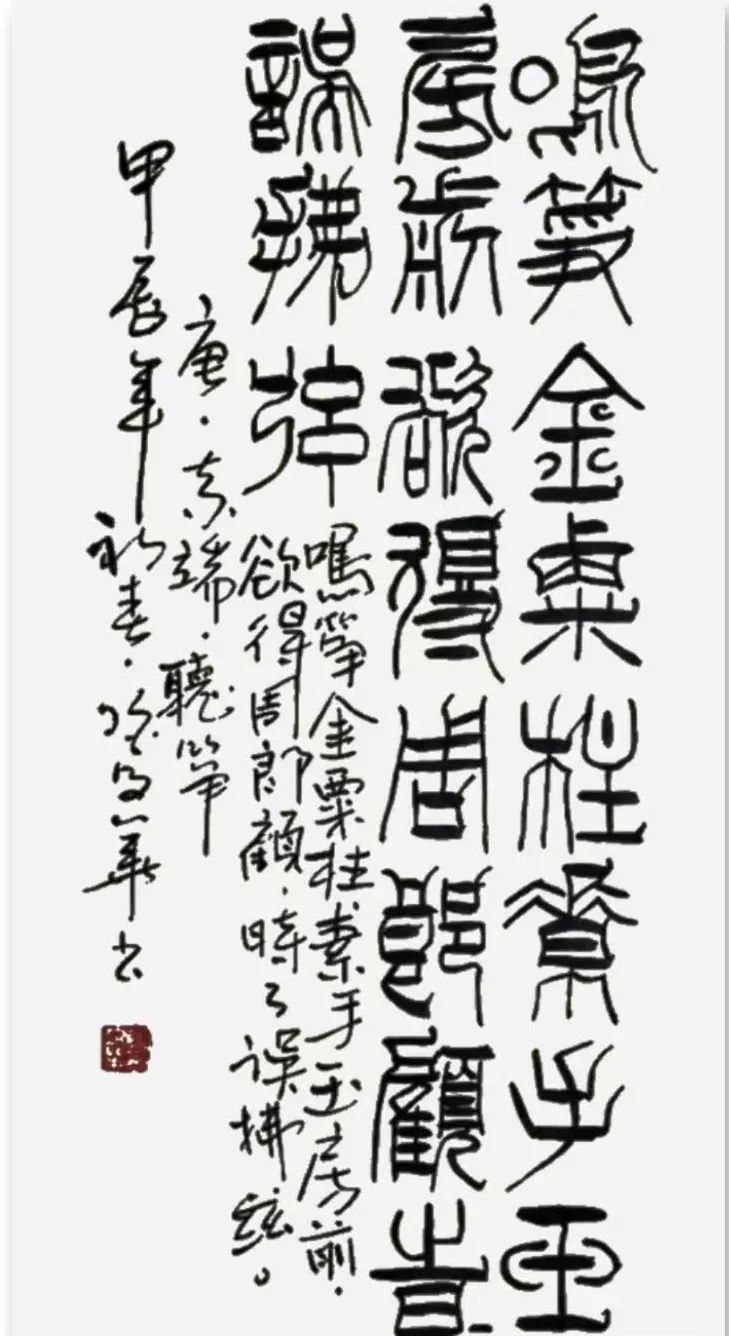 鳴箏金粟柱素手玉
房前欲得周郎顧時
誤拂弦
鳴箏金粟柱、素手玉房前.
欲得周郎顧.時々误拂絃。
唐.李端.聽箏
甲辰年新春.華书